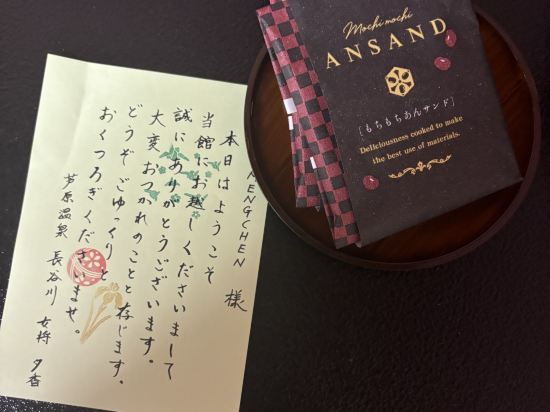 HENGCHEN 様
本日はようこそ
当館にお越しくださいまして
誠にありがとうございます。
大変おつかれのことと存じます。
どうぞごゆっくりと
おくつろぎくださいませ。
芦原温泉 長谷川 女将 夕香
Mochi mochi
ANSAND
[もちもちあんサンド]
Deliciousness cooked to make
the best use of materials.